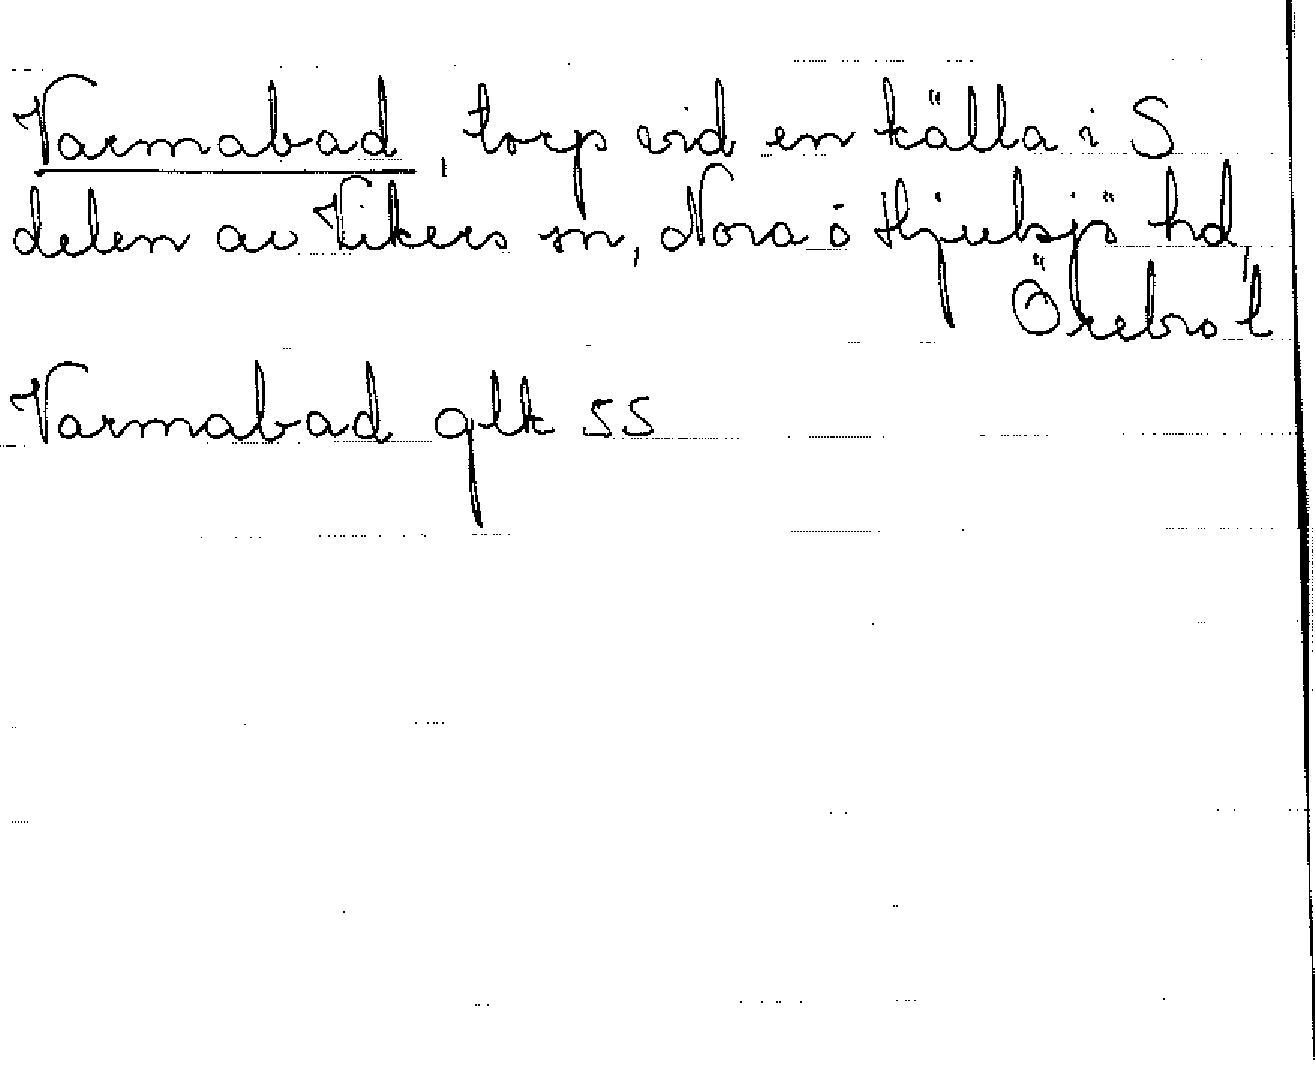 Varmabad, torp vid en källa i S
delen av Vikers sn, Nora o Hjulsjö hd,
Örebro l
Varmabad glk 55